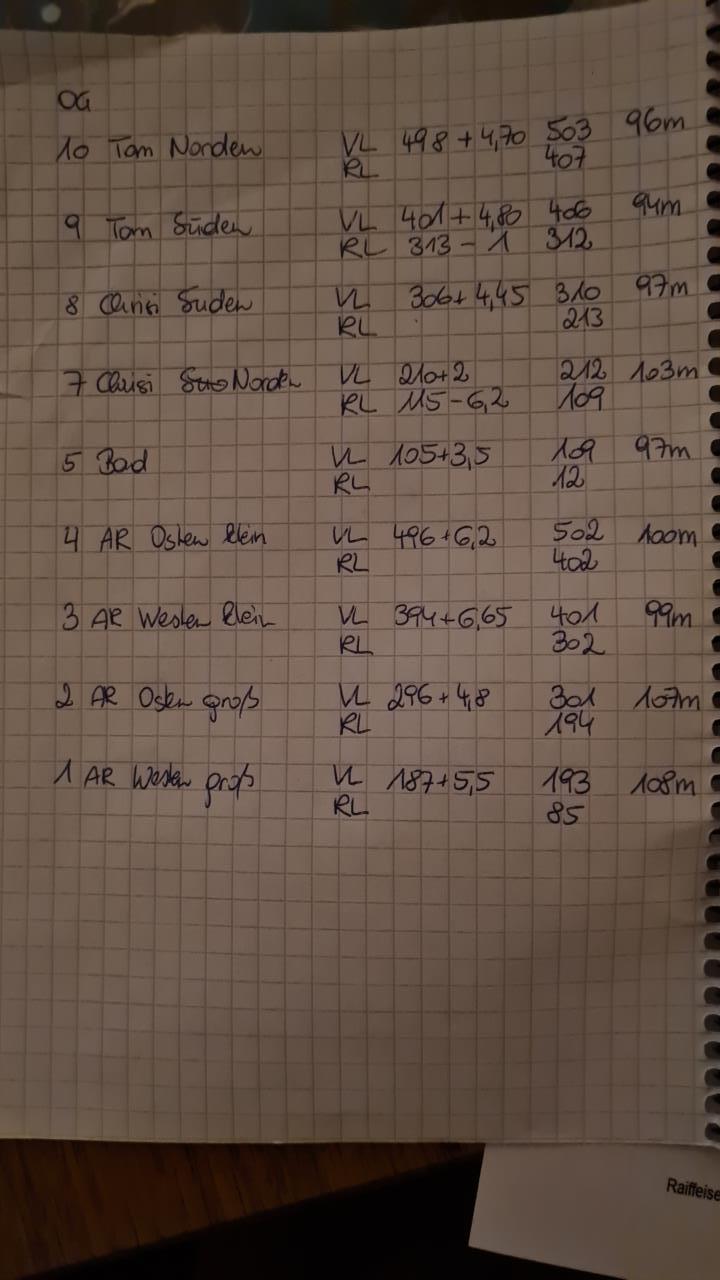 OG
10 Tom Norden VL 498 + 4,70 503 96m
RL 407
9 Tom Süden VL 401 + 4,80 406 94m
RL 313 - 1 312
8 Chrisi Süden VL 306 + 4,45 310 97m
RL 213
7 Chrisi Norden VL 210+2 212 103m
RL 115 - 6,2 109
5 Bad VL 105+3,5 109 97m
RL 12
4 AR Osten klein VL 496 + 6,2 502 100m
RL 402
3 AR Westen klein VL 394 + 6,65 401 99m
RL 302
2 AR Osten groß VL 296 + 4,8 301 107m
RL 194
1 AR Westen groß VL 187 + 5,5 193 108m
RL 85
Raiffeise